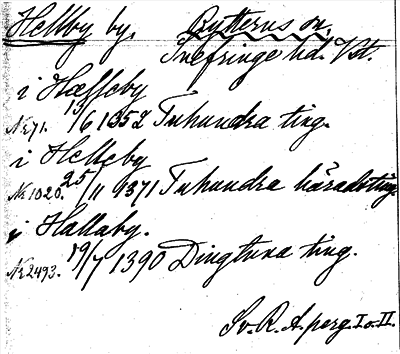 Hellby by, Rytterns sn,
Snefringe hd. Vst.
i Hælleby
Nr 71. 13/6 1352 Tuhundra ting.
i Helleby
Nr 1020. 25/11 1371 Tuhundra häradsting.
i Hallaby.
Nr 2493. 19/7 1390 Dingtuna ting.
Sv. R. A. perg. I o. II.